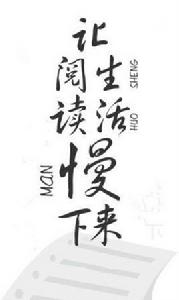 让
阅读
生活
慢
下来
SHENG
HUO
MAN